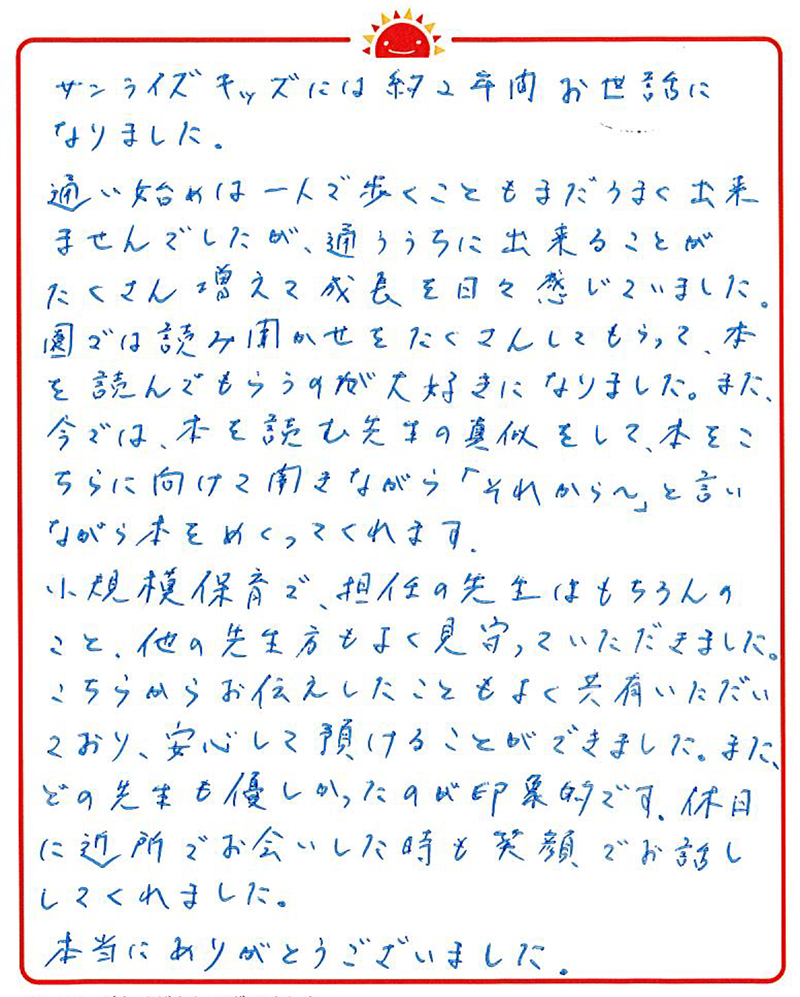 サンライズキッズには約2年間お世話に
なりました。
通い始めは一人で歩くこともまだうまく出来
ませんでしたが、通ううちに出来ることが
たくさん増えて成長を日々感じていました。
園では読み聞かせをたくさんしてもらって、本
を読んでもらうのが大好きになりました。また、
今では、本を読む先生の真似をして、本をこ
ちらに向けて開きながら「それから〜」と言い
ながら本をめくってくれます。
小規模保育で、担任の先生はもちろんの
こと、他の先生方もよく見守っていただきました。
こちらからお伝えしたこともよく共有いただい
ており、安心して預けることができました。また、
どの先生も優しかったのが印象的です。休日
に近所でお会いした時も笑顔でお話し
してくれました。
本当にありがとうございました。